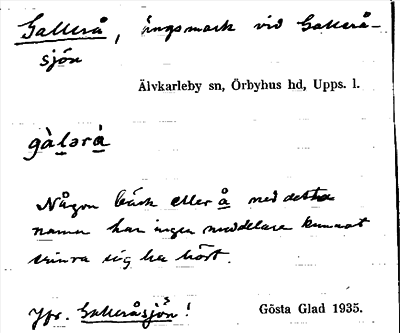 Gallerå, ängsmark vid Gallerå-
sjön
Älvkarleby sn, Örbyhus hd, Upps. l.
gàlərà
Någon bäck eller å med detta
namn har ingen meddelare kunnat
erinra sig ha hört.
Jfr. Galleråsjön!
Gösta Glad 1935.